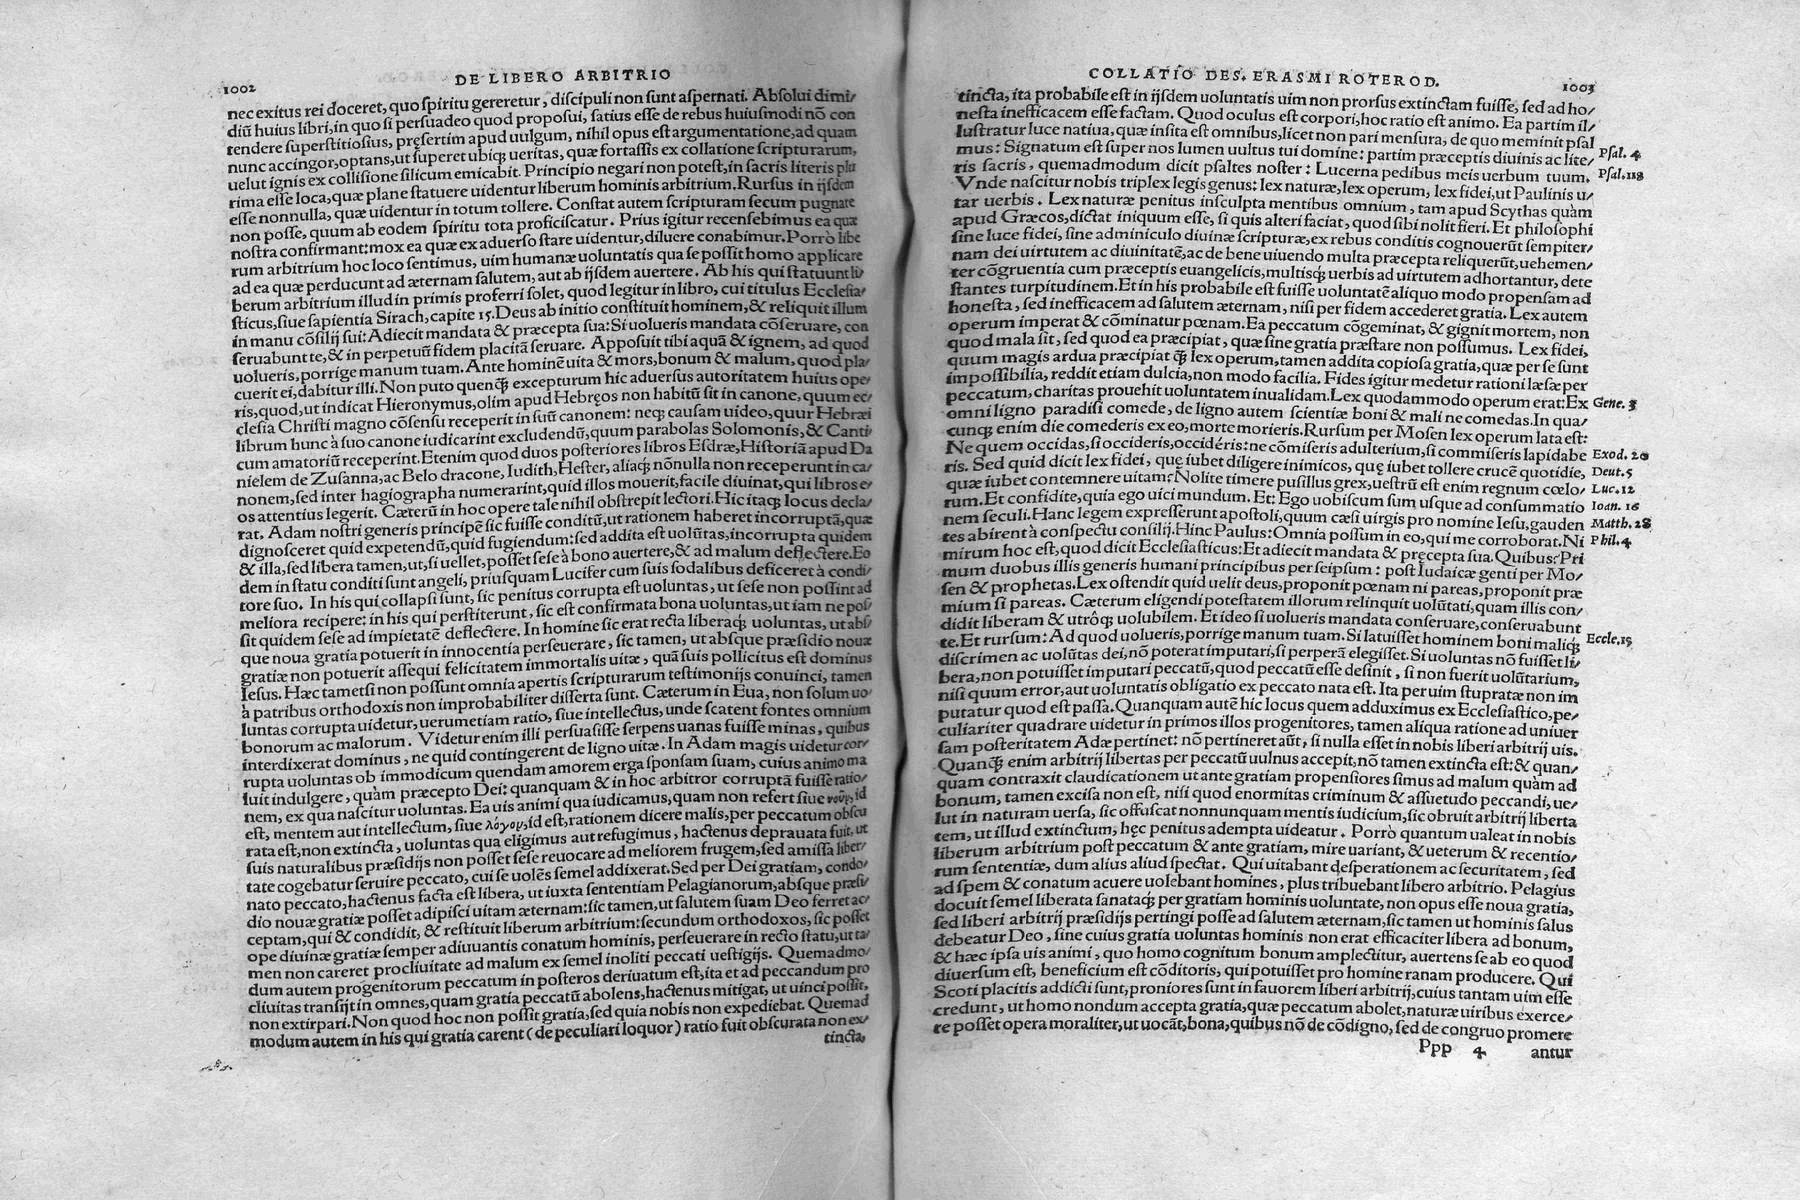 1002
DE LIBERO ARBITRIO
nec exitus rei doceret, quo spiritu gereretur, discipuli non sunt aspernati. Absolui dimi/
diũ huius libri, in quo si persuadeo quod proposui, satius esse de rebus huiusmodi nõ con
tendere superstitiosius, pręsertim apud uulgum, nihil opus est argumentatione, ad quam
nunc accingor, optans, ut superet ubiq; ueritas, quæ fortassis ex collatione scripturarum,
uelut ignis ex collisione silicum emicabit. Principio negari non potest, in sacris literis plu
rima esse loca, quæ plane statuere uidentur liberum hominis arbitrium. Rursus in ijsdem
esse nonnulla, quæ uidentur in totum tollere. Constat autem scripturam secum pugnare
non posse, quum ab eodem spiritu tota proficiscatur. Prius igitur recensebimus ea quæ
nostra confirmant: mox ea quæ ex aduerso stare uidentur, diluere conabimur. Porrò libe
rum arbitrium hoc loco sentimus, uim humanæ uoluntatis qua se possit homo applicare
ad ea quæ perducunt ad æternam salutem, aut ab ijsdem auertere. Ab his qui statuunt li/
berum arbitrium illud in primis proferri solet, quod legitur in libro, cui titulus Ecclesia/
sticus, siue sapientia Sirach, capite 15. Deus ab initio constituit hominem, & reliquit illum
in manu cõsilij sui: Adiecit mandata & præcepta sua: Si uolueris mandata cõseruare, con
seruabunt te, & in perpetuũ fidem placitã seruare. Apposuit tibi aquã & ignem, ad quod
uolueris, porrige manum tuam. Ante hominẽ uita & mors, bonum & malum, quod pla/
cuerit ei, dabitur illi. Non puto quenq̃ excepturum hic aduersus autoritatem huius ope/
ris, quod, ut indicat Hieronymus, olim apud Hebręos non habitũ sit in canone, quum ec/
clesia Christi magno cõsensu receperit in suũ canonem: neq; causam uideo, quur Hebræi
librum hunc à suo canone iudicarint excludendũ, quum parabolas Solomonis, & Canti/
cum amatoriũ receperint. Etenim quod duos posteriores libros Esdræ, Historiã apud Da
nielem de Zusanna, ac Belo dracone, Iudith, Hester, aliaq; nõnulla non receperunt in ca/
nonem, sed inter hagiographa numerarint, quid illos mouerit, facile diuinat, qui libros e/
os attentius legerit. Cæterũ in hoc opere tale nihil obstrepit lectori. Hic itaq; locus decla/
rat. Adam nostri generis principẽ sic fuisse conditũ, ut rationem haberet incorruptã, quæ
dignosceret quid expetendũ, quid fugiendum: sed addita est uolũtas, incorrupta quidem
& illa, sed libera tamen, ut, si uellet, posset sese à bono auertere, & ad malum deflectere. Eo
dem in statu conditi sunt angeli, priusquam Lucifer cum suis sodalibus deficeret à condi/
tore suo. In his qui collapsi sunt, sic penitus corrupta est uoluntas, ut sese non possint ad
meliora recipere: in his qui perstiterunt, sic est confirmata bona uoluntas, ut iam ne pos/
sit quidem sese ad impietatẽ deflectere. In homine sic erat recta liberaq; uoluntas, ut abs/
que noua gratia potuerit in innocentia perseuerare, sic tamen, ut absque præsidio nouæ
gratiæ non potuerit assequi felicitatem immortalis uitæ, quã suis pollicitus est dominus
Iesus. Hæc tametsi non possunt omnia apertis scripturarum testimonijs conuinci, tamen
à patribus orthodoxis non improbabiliter disserta sunt. Cæterum in Eua, non solum uo/
luntas corrupta uidetur, uerumetiam ratio, siue intellectus, unde scatent fontes omnium
bonorum ac malorum. Videtur enim illi persuasisse serpens uanas fuisse minas, quibus
interdixerat dominus, ne quid contingerent de ligno uitæ. In Adam magis uidetur cor/
rupta uoluntas ob immodicum quendam amorem erga sponsam suam, cuius animo ma
luit indulgere, quàm præcepto Dei: quanquam & in hoc arbitror corruptã fuisse ratio/
nem, ex qua nascitur uoluntas. Ea uis animi qua iudicamus, quam non refert siue νοῦν, id
est, mentem aut intellectum, siue λόγον, id est, rationem dicere malis, per peccatum obscu
rata est, non extincta, uoluntas qua eligimus aut refugimus, hactenus deprauata fuit, ut
suis naturalibus præsidijs non posset sese reuocare ad meliorem frugem, sed amissa liber/
tate cogebatur seruire peccato, cui se uolẽs semel addixerat. Sed per Dei gratiam, condo/
nato peccato, hactenus facta est libera, ut iuxta sententiam Pelagianorum, absque præsi/
dio nouæ gratiæ posset adipisci uitam æternam: sic tamen, ut salutem suam Deo ferret ac/
ceptam, qui & condidit, & restituit liberum arbitrium: secundum orthodoxos, sic posset
ope diuinæ gratiæ semper adiuuantis conatum hominis, perseuerare in recto statu, ut ta/
men non careret procliuitate ad malum ex semel inoliti peccati uestigijs. Quemadmo/
dum autem progenitorum peccatum in posteros deriuatum est, ita et ad peccandum pro
cliuitas transijt in omnes, quam gratia peccatũ abolens, hactenus mitigat, ut uinci possit,
non extirpari. Non quod hoc non possit gratia, sed quia nobis non expediebat. Quemad
modum autem in his qui gratia carent (de peculiari loquor) ratio fuit obscurata non ex/
tincta,
COLLATIO DES. ERASMI ROTEROD.
1003
tincta, ita probabile est in ijsdem uoluntatis uim non prorsus extinctam fuisse, sed ad ho/
nesta inefficacem esse factam. Quod oculus est corpori, hoc ratio est animo. Ea partim il/
lustratur luce natiua, quæ insita est omnibus, licet non pari mensura, de quo meminit psal
mus: Signatum est super nos lumen uultus tui domine: partim præceptis diuinis ac lite/
Psal. 4
ris sacris, quemadmodum dicit psaltes noster: Lucerna pedibus meis uerbum tuum.
Psal. 118
Vnde nascitur nobis triplex legis genus: lex naturæ, lex operum, lex fidei, ut Paulinis u/
tar uerbis. Lex naturæ penitus insculpta mentibus omnium, tam apud Scythas quàm
apud Græcos, dictat iniquum esse, si quis alteri faciat, quod sibi nolit fieri. Et philosophi
sine luce fidei, sine adminiculo diuinæ scripturæ, ex rebus conditis cognouerũt sempiter/
nam dei uirtutem ac diuinitatẽ, ac de bene uiuendo multa præcepta reliquerũt, uehemen/
ter cõgruentia cum præceptis euangelicis, multisq; uerbis ad uirtutem adhortantur, dete
stantes turpitudinem. Et in his probabile est fuisse uoluntatẽ aliquo modo propensam ad
honesta, sed inefficacem ad salutem æternam, nisi per fidem accederet gratia. Lex autem
operum imperat & cõminatur pœnam. Ea peccatum cõgeminat, & gignit mortem, non
quod mala sit, sed quod ea præcipiat, quæ sine gratia præstare non possumus. Lex fidei,
quum magis ardua præcipiat q̃ lex operum, tamen addita copiosa gratia, quæ per se sunt
impossibilia, reddit etiam dulcia, non modo facilia. Fides igitur medetur rationi læsæ per
peccatum, charitas prouehit uoluntatem inualidam. Lex quodammodo operum erat: Ex
Gene. 3
omni ligno paradisi comede, de ligno autem scientiæ boni & mali ne comedas. In qua/
cunq; enim die comederis ex eo, morte morieris. Rursum per Mosen lex operum lata est:
Ne quem occidas, si occideris, occidéris: ne cõmiseris adulterium, si commiseris lapidabe
Exod. 20
ris. Sed quid dicit lex fidei, quę iubet diligere inimicos, quę iubet tollere crucẽ quotidie,
Deut. 5
quæ iubet contemnere uitam? Nolite timere pusillus grex, uestrũ est enim regnum cœlo/
Luc. 12
rum. Et confidite, quia ego uici mundum. Et: Ego uobiscum sum usque ad consummatio
Ioan. 16
nem seculi. Hanc legem expresserunt apostoli, quum cæsi uirgis pro nomine Iesu, gauden
Matth. 28
tes abirent à conspectu consilij. Hinc Paulus: Omnia possum in eo, qui me corroborat. Ni
Phil. 4
mirum hoc est, quod dicit Ecclesiasticus: Et adiecit mandata & pręcepta sua. Quibus? Pri
mum duobus illis generis humani principibus per seipsum: post Iudaicæ genti per Mo/
sen & prophetas. Lex ostendit quid uelit deus, proponit pœnam ni pareas, proponit præ
mium si pareas. Cæterum eligendi potestatem illorum relinquit uolũtati, quam illis con/
didit liberam & utrôq; uolubilem. Et ideo si uolueris mandata conseruare, conseruabunt
te. Et rursum: Ad quod uolueris, porrige manum tuam. Si latuisset hominem boni maliq;
Eccle. 15
discrimen ac uolũtas dei, nõ poterat imputari, si perperã elegisset. Si uoluntas nõ fuisset li/
bera, non potuisset imputari peccatũ, quod peccatũ esse desinit, si non fuerit uolũtarium,
nisi quum error, aut uoluntatis obligatio ex peccato nata est. Ita per uim stupratæ non im
putatur quod est passa. Quanquam autẽ hic locus quem adduximus ex Ecclesiastico, pe/
culiariter quadrare uidetur in primos illos progenitores, tamen aliqua ratione ad uniuer
sam posteritatem Adæ pertinet: nõ pertineret aũt, si nulla esset in nobis liberi arbitrij uis.
Quanq̃ enim arbitrij libertas per peccatũ uulnus accepit, nõ tamen extincta est: & quan/
quam contraxit claudicationem ut ante gratiam propensiores simus ad malum quàm ad
bonum, tamen excisa non est, nisi quod enormitas criminum & assuetudo peccandi, ue/
lut in naturam uersa, sic offuscat nonnunquam mentis iudicium, sic obruit arbitrij liberta
tem, ut illud extinctum, hęc penitus adempta uideatur. Porrò quantum ualeat in nobis
liberum arbitrium post peccatum & ante gratiam, mire uariant, & ueterum & recentio/
rum sententiæ, dum alius aliud spectat. Qui uitabant desperationem ac securitatem, sed
ad spem & conatum acuere uolebant homines, plus tribuebant libero arbitrio. Pelagius
docuit semel liberata sanataq; per gratiam hominis uoluntate, non opus esse noua gratia,
sed liberi arbitrij præsidijs pertingi posse ad salutem æternam, sic tamen ut hominis salus
debeatur Deo, sine cuius gratia uoluntas hominis non erat efficaciter libera ad bonum,
& hæc ipsa uis animi, quo homo cognitum bonum amplectitur, auertens se ab eo quod
diuersum est, beneficium est cõditoris, qui potuisset pro homine ranam producere. Qui
Scoti placitis addicti sunt, proniores sunt in fauorem liberi arbitrij, cuius tantam uim esse
credunt, ut homo nondum accepta gratia, quæ peccatum abolet, naturæ uiribus exerce/
te posset opera moraliter, ut uocãt, bona, quibus nõ de cõdigno, sed de congruo promere
Ppp 4
antur